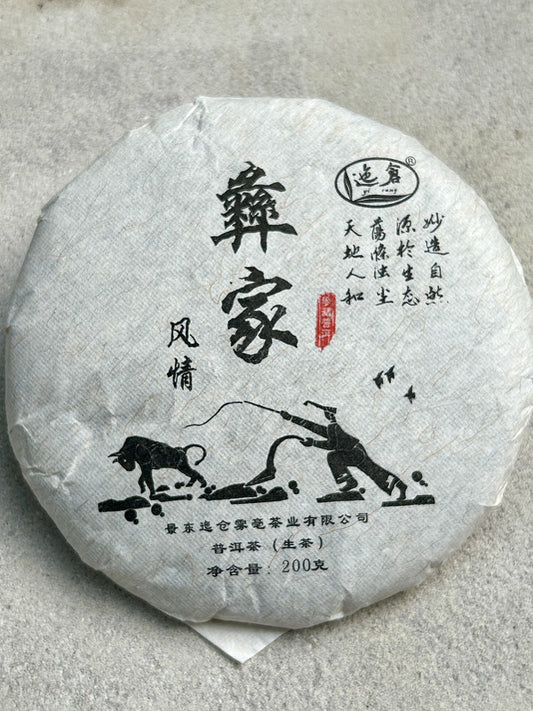 彝家
风情
迤倉
®
yi cang
妙造自然
源於生态
蕩滌浊尘
天地人和
景东迤仓雾毫茶业有限公司
普洱茶（生茶）
净含量：200克